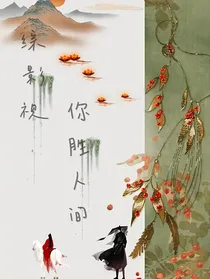 综影视
你胜人间